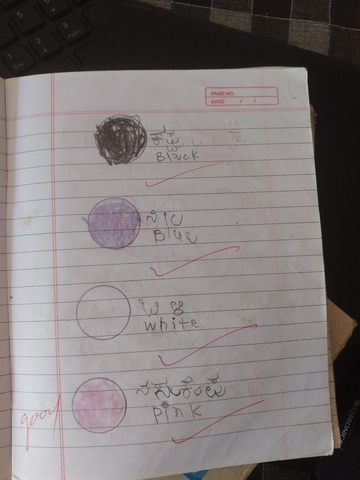 PAGE NO.
DATE / /
ಕಪ್ಪು
Black
ನೀಲಿ
Blue
ಬಿಳಿ
white
pink
good